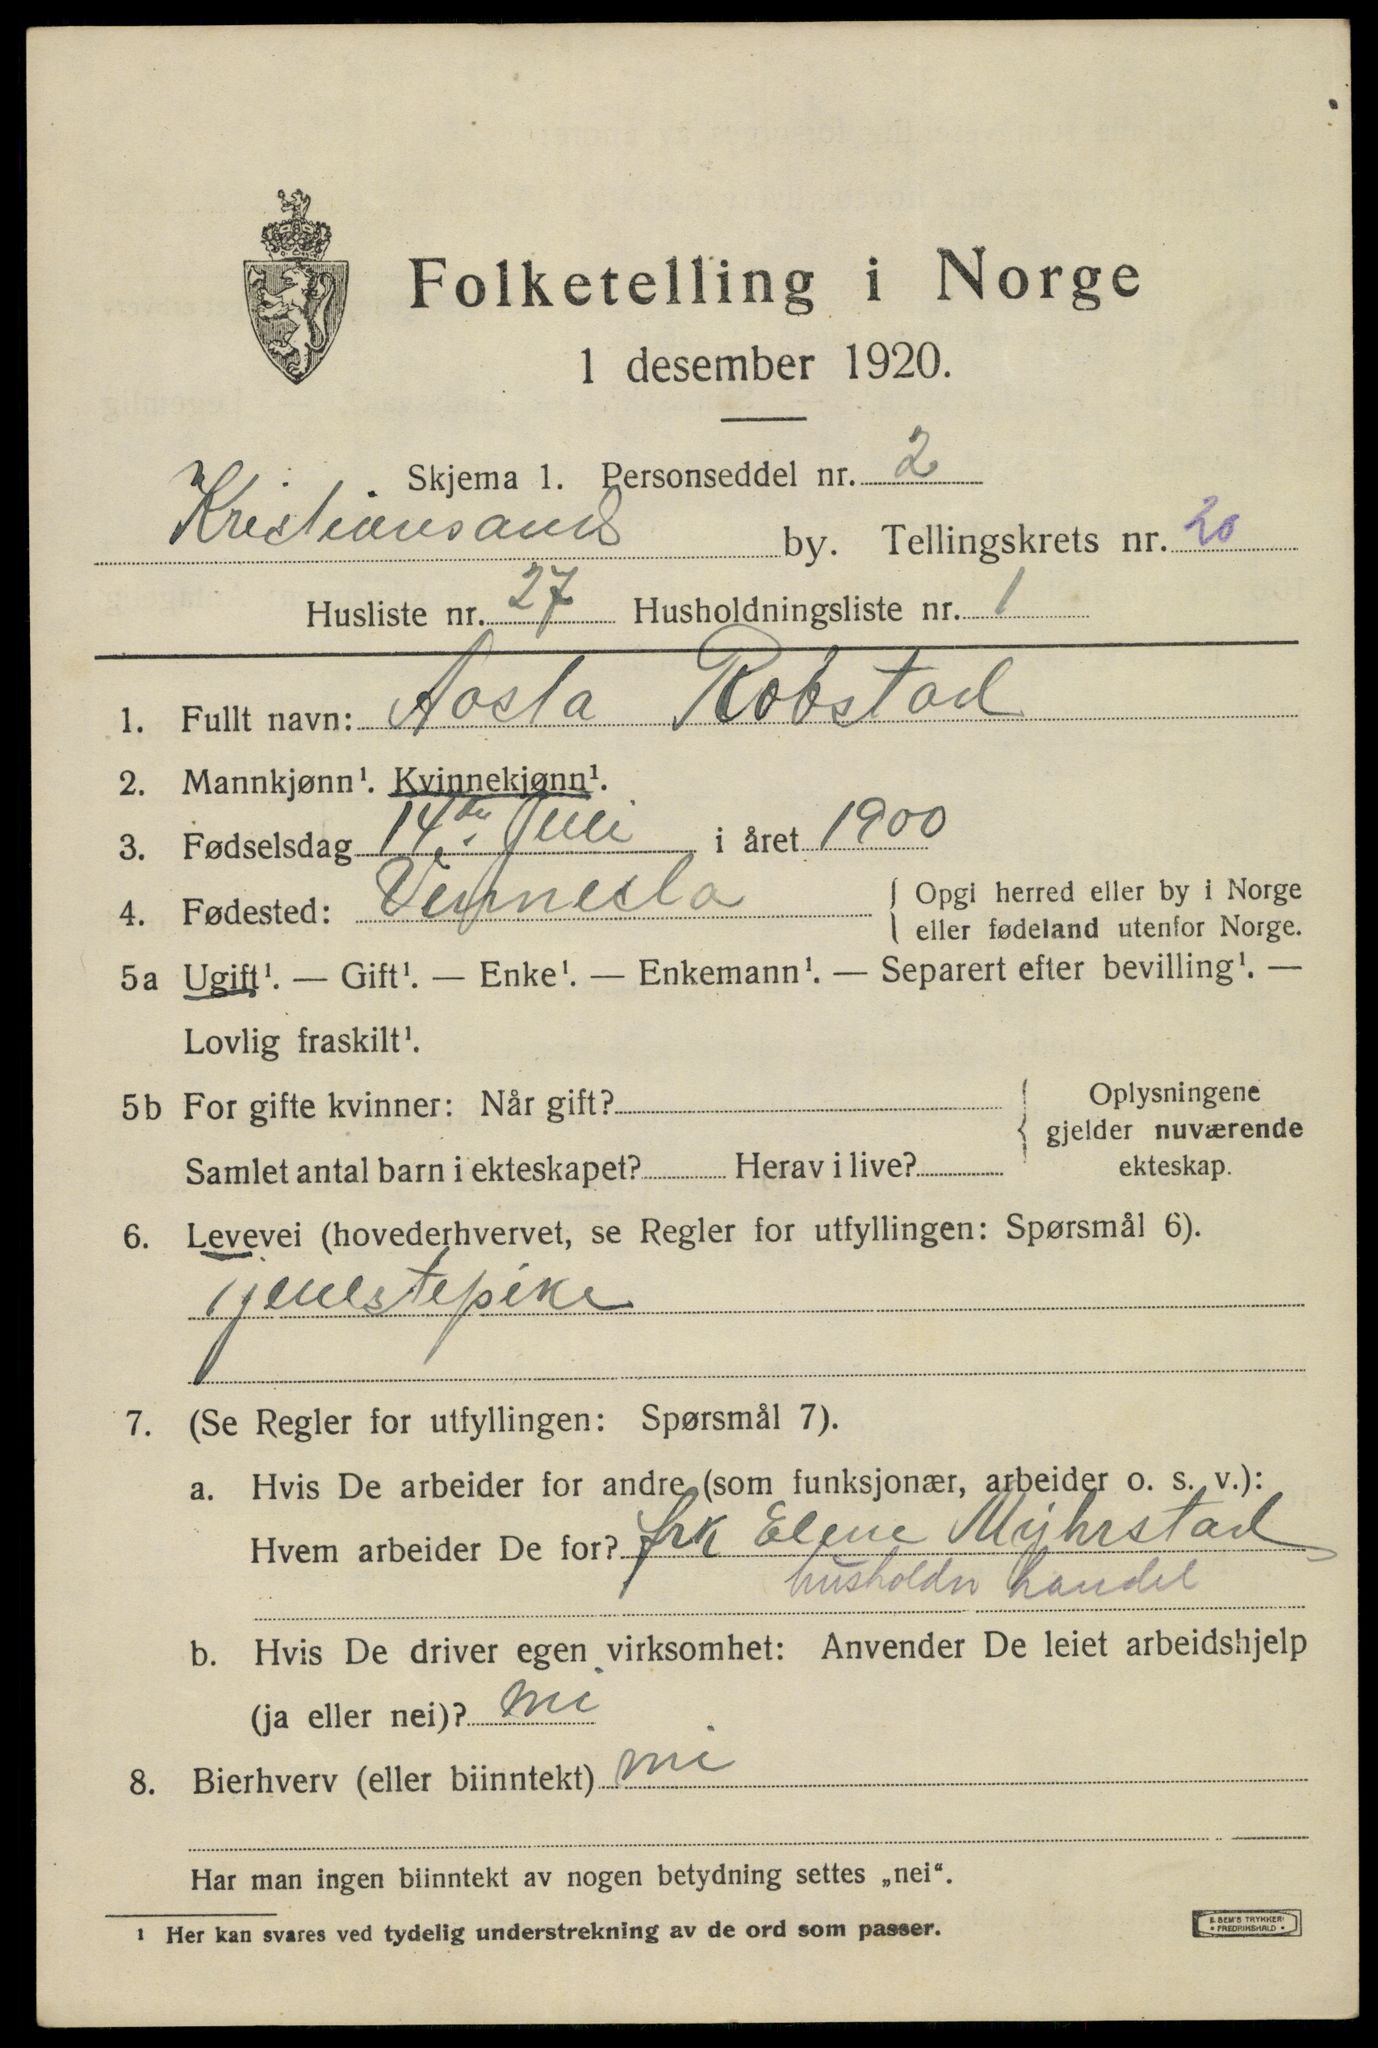 Folketelling i Norge
1 desember 1920.
Skjema 1. Personseddel nr. 2
Kristiansand by. Tellingskrets nr. 20
Husliste nr. 27 Husholdningsliste nr. 1
1. Fullt navn: Aasta Robstad
2. Mannkjønn¹. Kvinnekjønn¹.
3. Fødselsdag 14de Juli i året 1900
4. Fødested: Vennesla { Opgi herred eller by i Norge
eller fødeland utenfor Norge.
5a Ugift¹. — Gift¹. — Enke¹. — Enkemann¹. — Separert efter bevilling¹. —
Lovlig fraskilt¹.
5b For gifte kvinner: Når gift? { Oplysningene
gjelder nuværende
Samlet antal barn i ekteskapet? Herav i live? ekteskap.
6. Levevei (hovederhvervet, se Regler for utfyllingen: Spørsmål 6).
Tjenestepike
7. (Se Regler for utfyllingen: Spørsmål 7).
a. Hvis De arbeider for andre (som funksjonær, arbeider o. s. v.):
Hvem arbeider De for? frk Elene Myhrstad
husholdn handel
b. Hvis De driver egen virksomhet: Anvender De leiet arbeidshjelp
(ja eller nei)? nei
8. Bierhverv (eller biinntekt) nei
Har man ingen biinntekt av nogen betydning settes „nei“.
¹ Her kan svares ved tydelig understrekning av de ord som passer.
E. SEM'S TRYKKERI
• FREDRIKSHALD •